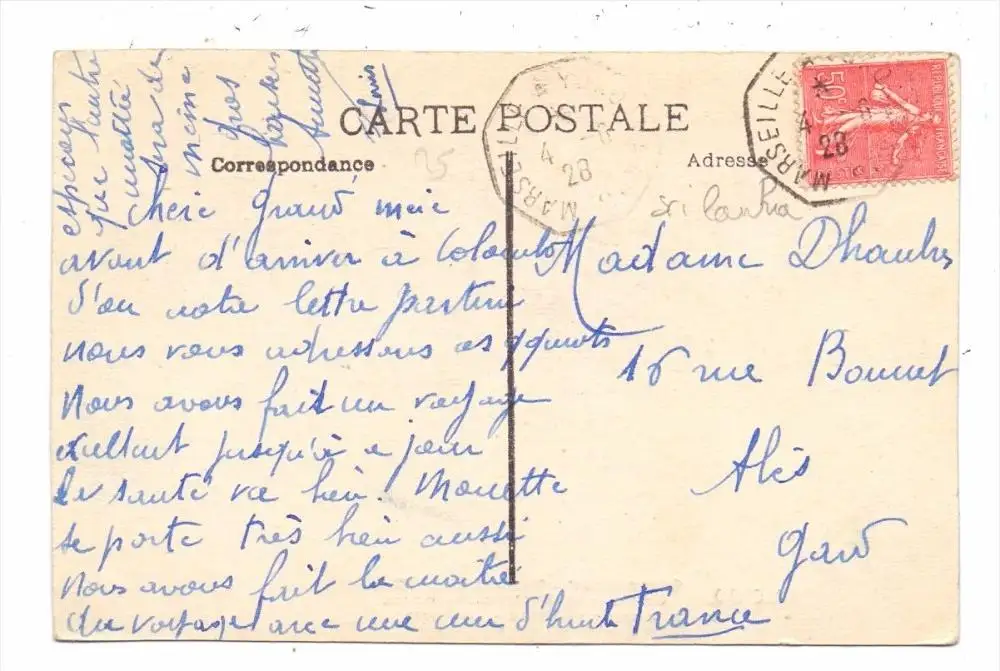 CARTE POSTALE
Correspondance
Adresse
REPUBLIQUE FRANÇAISE
50c
MARSEILLE
4
28
MARSEILLE
4
28
25
sri lanka
Chère Grand mère
avant d'arriver à Colombo
d'où notre lettre partira
nous vous adressons ces
Nous avons fait un voyage
excellent jusqu'à ce jour
la santé va bien. Monette
se porte très bien aussi
Nous avons fait la moitié
du voyage avec une mer d'huile
espérons
que l'autre
moitié
sera de
même
Gros
baisers
Louis
Madame
16 rue Bonnet
Alès
Gard
France